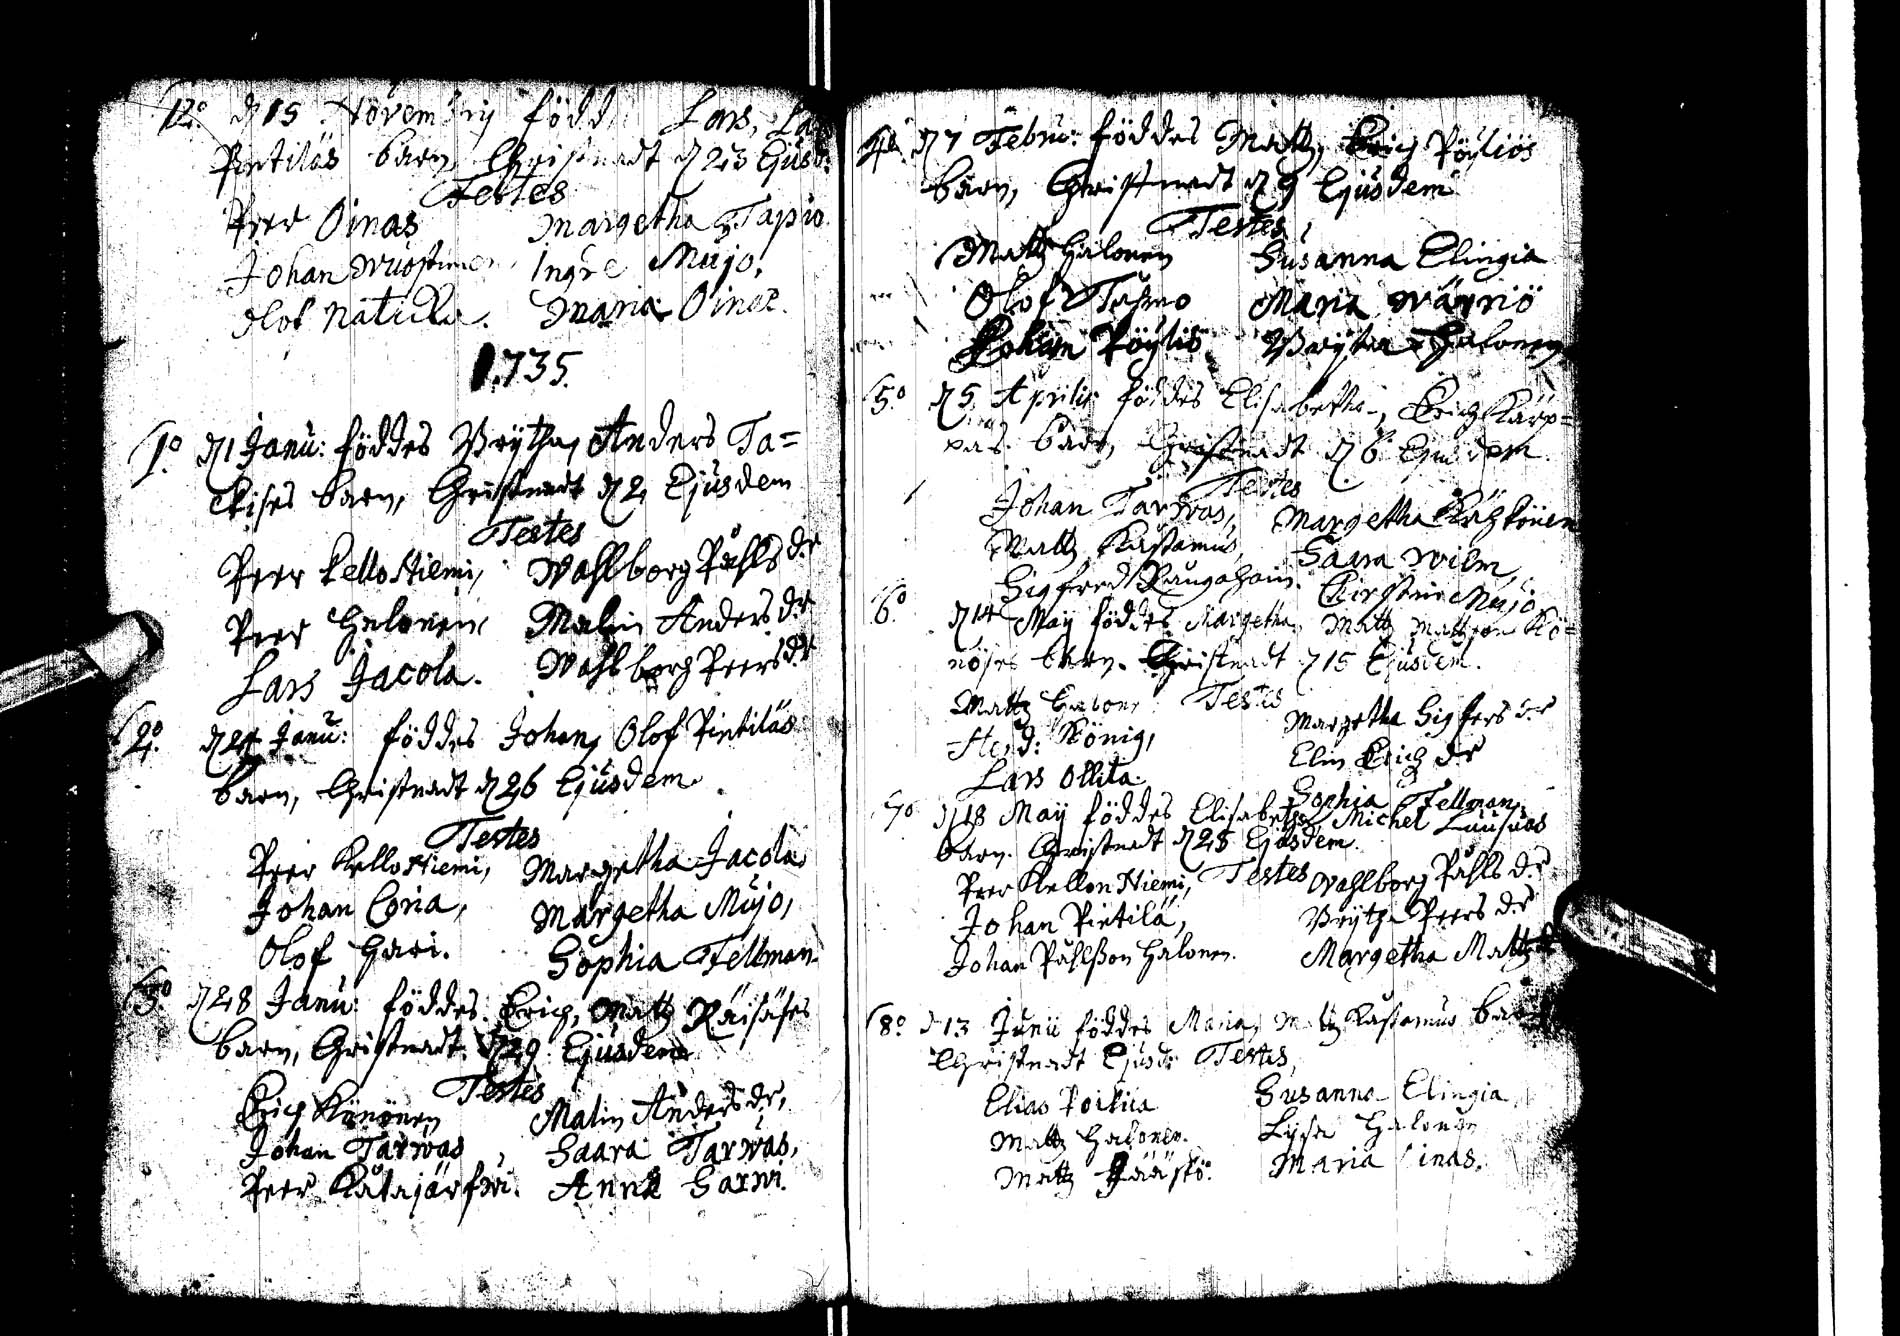 12.o d 15 Novembrij född Lars, La
Pintiläs barn, Christnadt d 23 Ejusd:
Testes
Peer Oinas Margetha Tapio
Johan Wuostimen, Ingre Mujo,
Olof Maria Oinas.
1735.
1.o d 1 Janu: föddes Brÿtha, Anders Ta=
ckises barn, Christnadt d 2 Ejusdem
Testes
Peer Kelloniemi, Wahlborg Påhls d:r
Peer Halonen, Malin Anders d:r
Lars Jacola. Wahlborg Peers d:r
2.o d 24 Janu: föddes Johan, Olof Pintiläs
barn, Christnadt d 26 Ejusdem.
Testes
Peer Kelloniemi, Margetha Jacola,
Johan Coria, Margetha Mujo,
Olof Hari. Sophia Fellman.
3.o d 28 Janu: föddes Erich, Mattz Räisäses
barn, Christnadt d 29 Ejusdem
Testes
Erich Könönen Malin Anders d:r,
Johan Tarwas, Saara Tarwas,
Peer Katajärfwi. Anna Sarwi.
4.o d 7 Febru: föddes Mattz, Erich Pöyliös
barn, Christnadt d 9 Ejusdem
Testes
Mattz Halonen Susanna Elingia
Olof Maria Wärriö
Johan Pöyliö Brÿtha Halonen
5.o d 5 Aprilis föddes Elisabetha, Erich Kärp=
pas barn, Christnadt d 6 Ejusdem
Testes
Johan Tarwas, Margetha Kähkönen
Mattz Kustamus, Saara Wilm,
Sigfred Kirstin Mujo
6.o d 14 May föddes Margetha, Mattz Mattzson Kö=
nöses barn. Christnadt d 15 Ejusdem.
Mattz Halone Testes Margetha Sigfers d:r
König, Elin Erich d:r
Lars Ollila. Sophia Fellman,
7.o d 18 Maÿ föddes Elisabetha, Michel Luusuas
barn. Christnadt d 28 Ejusdem.
Peer Kellon Niemi, Testes Wahlborg Påhls d:r
Johan Pintilä, Brÿtha Peers d:r
Johan Påhlßon Halonen. Margetha Mattz
8.o d 13 Junii föddes Maria, Mattz Kustamus barn
Christnadt Ejusd: Testes,
Elias Poikiia Susanna Elingia,
Mattz Halonen. Lÿsa Halonen
Mattz Jääskö. Maria Oinas.